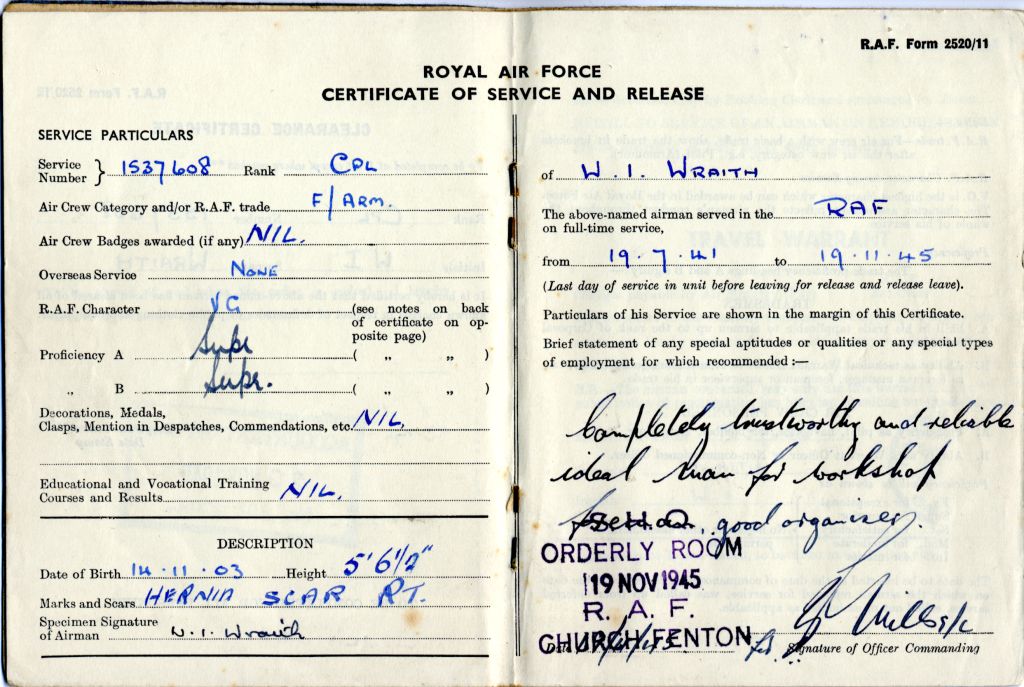 R.A.F. Form 2520/11
ROYAL AIR FORCE
CERTIFICATE OF SERVICE AND RELEASE
SERVICE PARTICULARS
Service Number } 1537608 Rank CPL
Air Crew Category and/or R.A.F. trade F/ARM.
Air Crew Badges awarded (if any) NIL.
Overseas Service NONE
R.A.F. Character VG (see notes on back
of certificate on op-
posite page)
Proficiency A Supr ( „ „ )
„ B Supr. ( „ „ )
Decorations, Medals,
Clasps, Mention in Despatches, Commendations, etc. NIL.
Educational and Vocational Training
Courses and Results NIL.
DESCRIPTION
Date of Birth 14.11.03 Height 5'6½"
Marks and Scars HERNIA SCAR RT.
Specimen Signature
of Airman W. I. Wraith
of W. I. WRAITH
The above-named airman served in the RAF
on full-time service,
from 19.7.41 to 19.11.45
(Last day of service in unit before leaving for release and release leave).
Particulars of his Service are shown in the margin of this Certificate.
Brief statement of any special aptitudes or qualities or any special types
of employment for which recommended :—
Completely trustworthy and reliable
ideal man for workshop
good organiser.
S.H.Q.
ORDERLY ROOM
19 NOV 1945
R. A. F.
CHURCH FENTON
Date
Signature of Officer Commanding